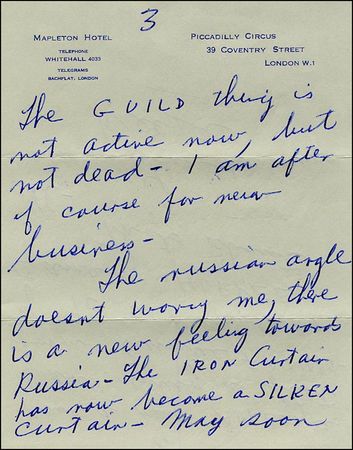 3
MAPLETON HOTEL
TELEPHONE
WHITEHALL 4033
TELEGRAMS
BACHFLAT, LONDON
PICCADILLY CIRCUS
39 COVENTRY STREET
LONDON W.1
The GUILD thing is
not active now, but
not dead - I am after
of course for new
business -
The russian angle
doesnt worry me, there
is a new feeling towards
Russia - The IRON Curtain
has now become a SILKEN
Curtain - May soon